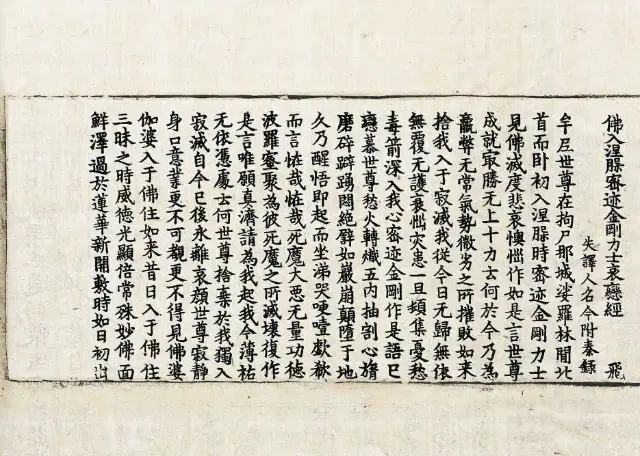 佛入涅槃密迹金剛力士哀戀經 飛
失譯人名今附秦錄
牟尼世尊在拘尸那城娑羅林間北
首而臥初入涅槃時密迹金剛力士
見佛滅度悲哀懊惱作如是言世尊
成就寂勝无上十力云何於今乃為
羸弊无常氣勢微劣之所摧敗如來
捨我入于寂滅我從今日无歸無依
無覆无護衰惱灾患一旦頓集憂愁
毒箭深入我心密迹金剛作是語已
戀慕世尊愁火轉熾五內抽割心膂
磨碎躃踊悶絕譬如巖崩顛墮于地
久乃醒悟即起而坐涕哭哽噎歔欷
而言怪哉怪哉死魔大惡无量功德
波羅蜜聚為彼死魔之所滅壞復作
是言唯願真濟請為我起我今薄祐
无依憑處云何世尊捨棄於我獨入
寂滅自今已後永離哀顏世尊寂靜
身口意業更不可覩更不得見佛婆
伽婆入于佛住如來昔日入于佛住
三昧之時威德光顯倍常殊妙佛面
鮮澤過於蓮華新開敷時如日初出